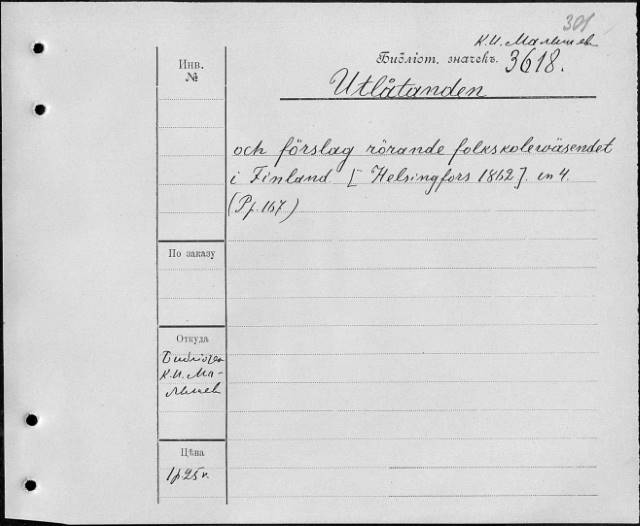 301
К.И. Малышев
Инв.
№
Библіот. значекъ.
3618.
Utlåtanden
och förslag rörande folkskolewäsendet
i Finland [Helsingfors 1862]. in 4.
(Pp. 167)
По заказу
Откуда
Библіотека
К.И. Ма-
лышев
Цѣна
1р.25к.